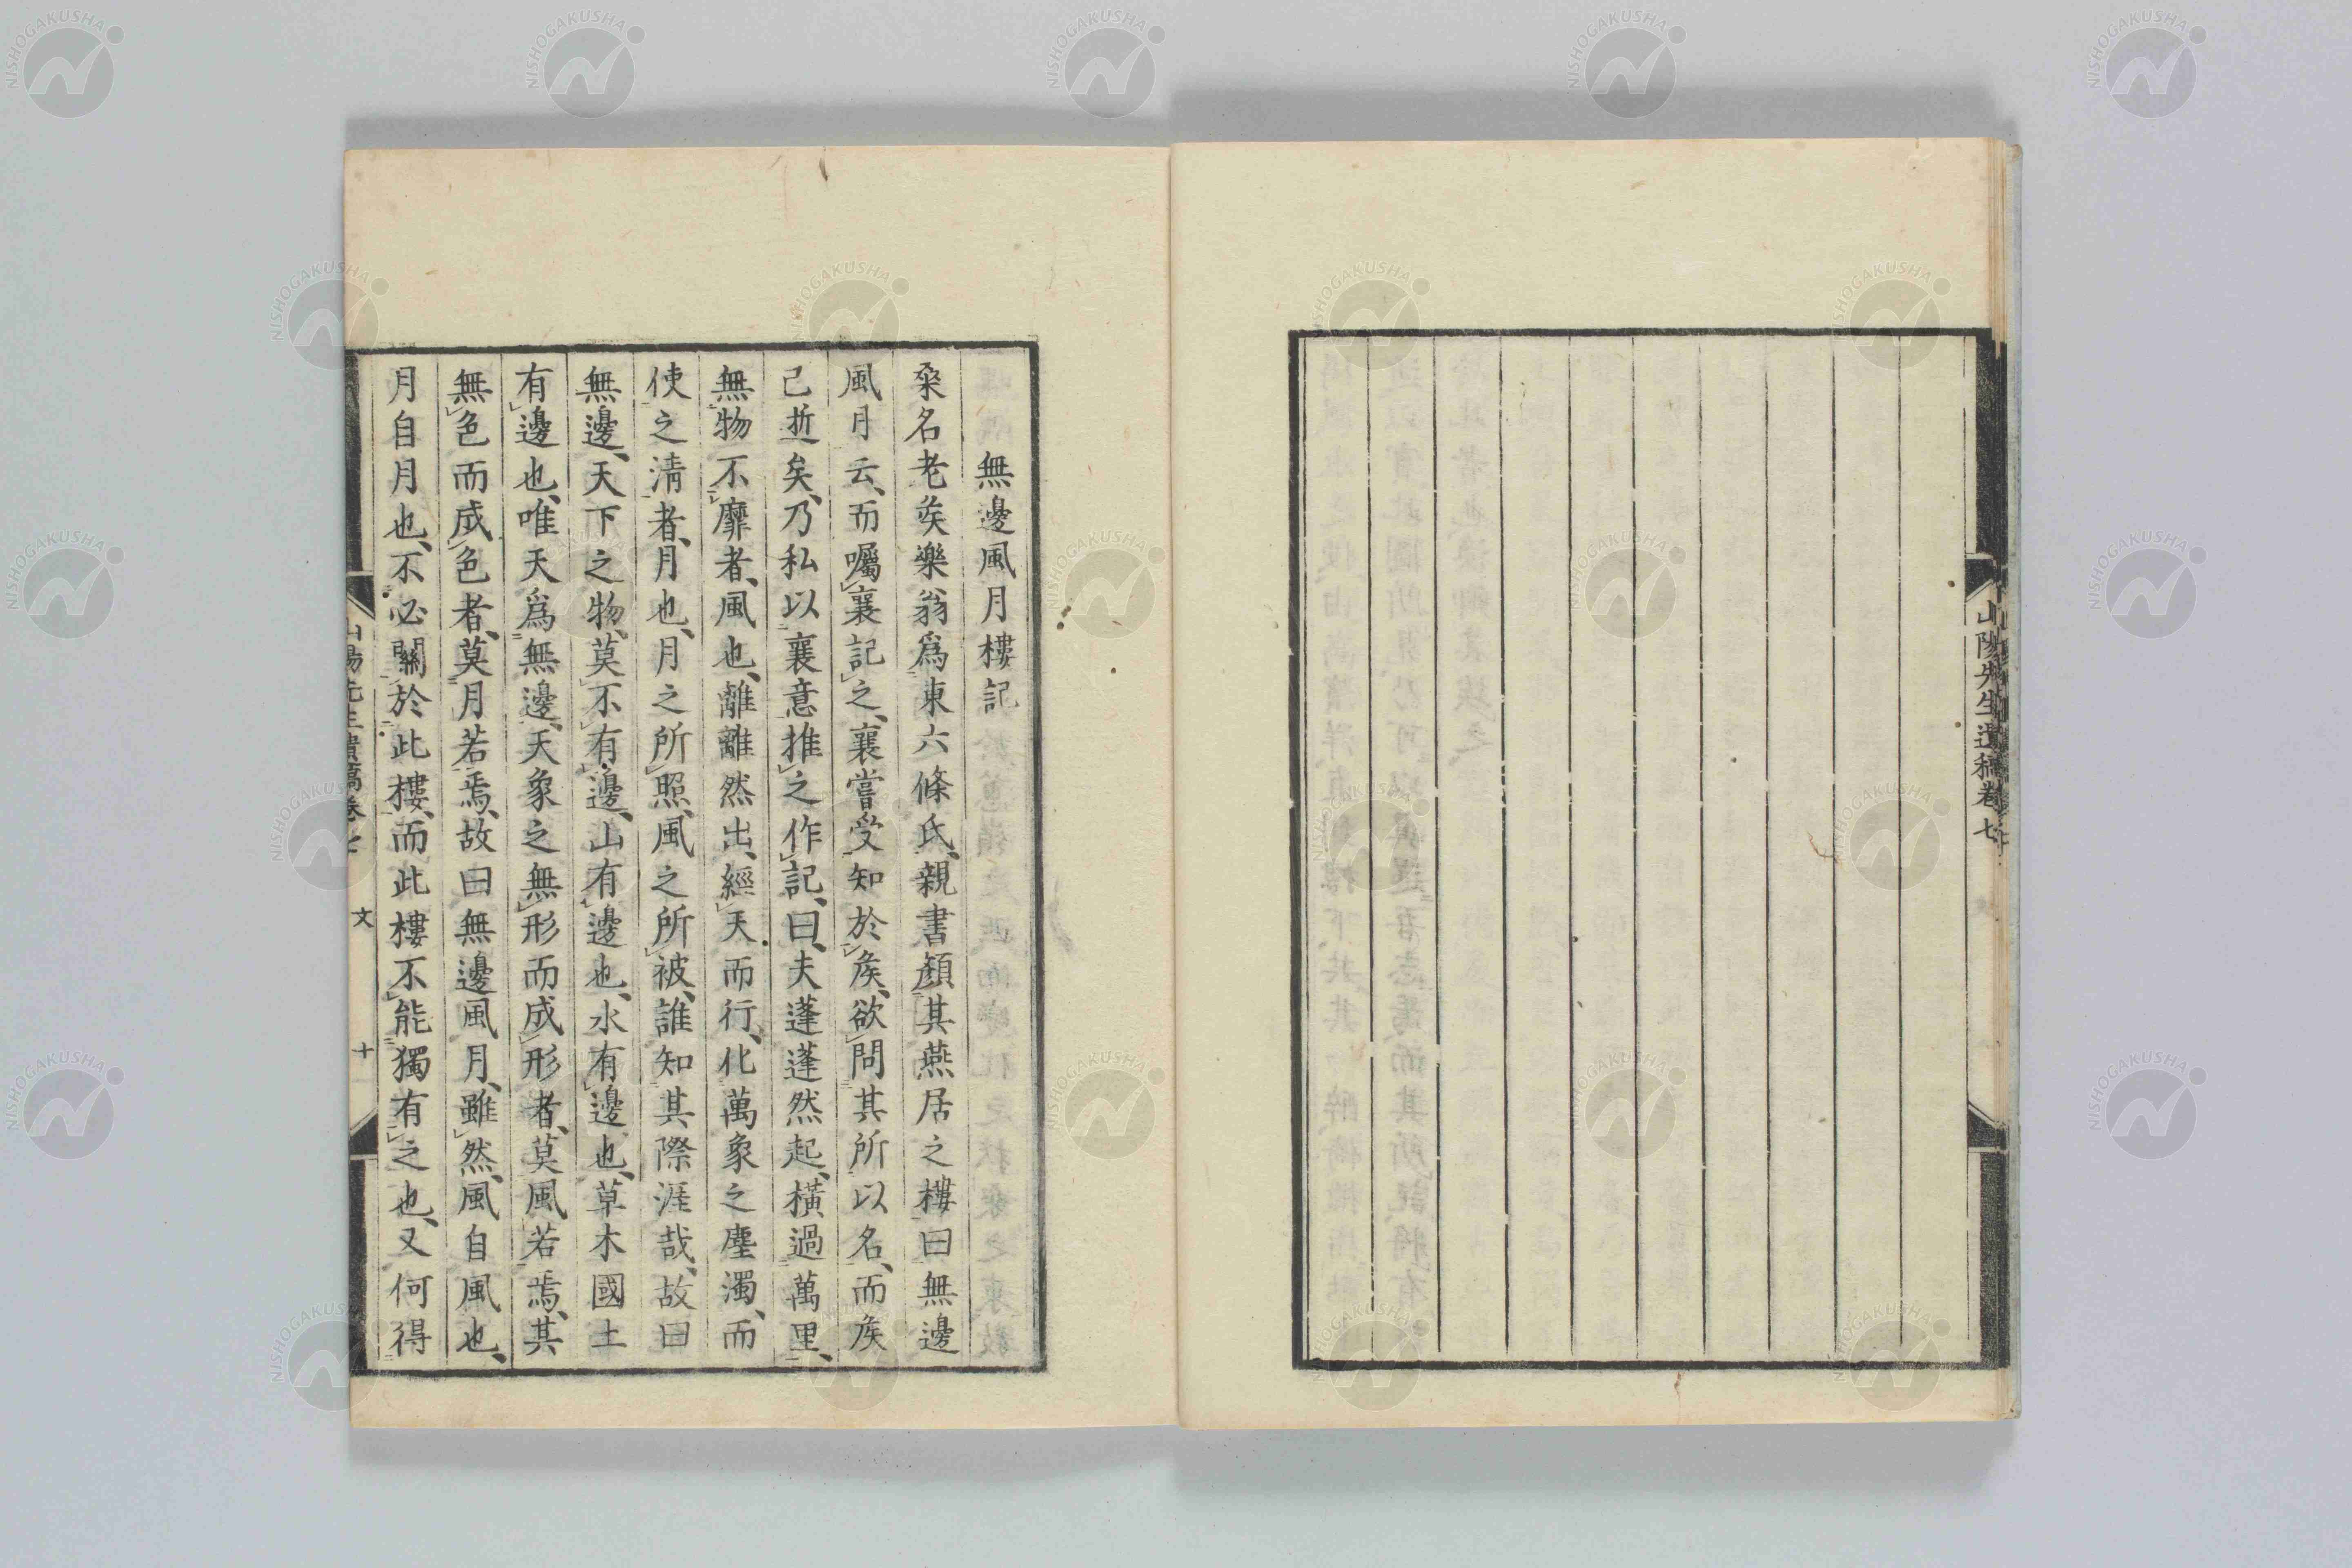 山陽先生遺稿卷七
無邊風月樓記
桑名老矦樂翁爲東六條氏、親書顏其燕居之樓曰無邊
風月云、而囑襄記之、襄嘗受知於矦、欲問其所以名、而矦
已逝矣、乃私以襄意推之作記、曰、夫蓬蓬然起、橫過萬里、
無物不靡者、風也、離離然出、經天而行、化萬象之塵濁、而
使之淸者、月也、月之所照、風之所被、誰知其際涯哉、故曰
無邊、天下之物、莫不有邊、山有邊也、水有邊也、草木國土
有邊也、唯天爲無邊、天象之無形而成形者、莫風若焉、其
無色而成色者、莫月若焉、故曰無邊風月、雖然、風自風也、
月自月也、不必關於此樓、而此樓不能獨有之也、又何得
山陽先生遺稿卷七
文
十
NISHOGAKUSHA